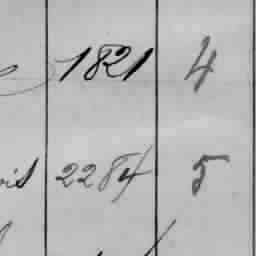 1821 4
2284 5